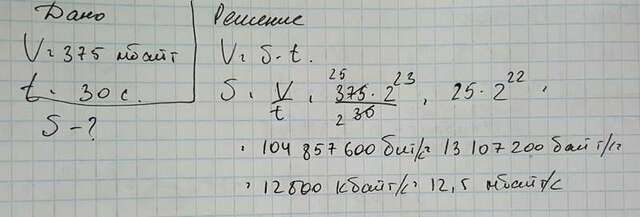 Дано
V = 375 мбайт
t = 30 с.
S - ?
Решение
V = S · t.
S = V/t = 375 · 2^23 / 30 = 25 · 2^22 =
25
2
= 104 857 600 бит/с = 13 107 200 байт/с
= 12800 кбайт/с = 12,5 мбайт/с